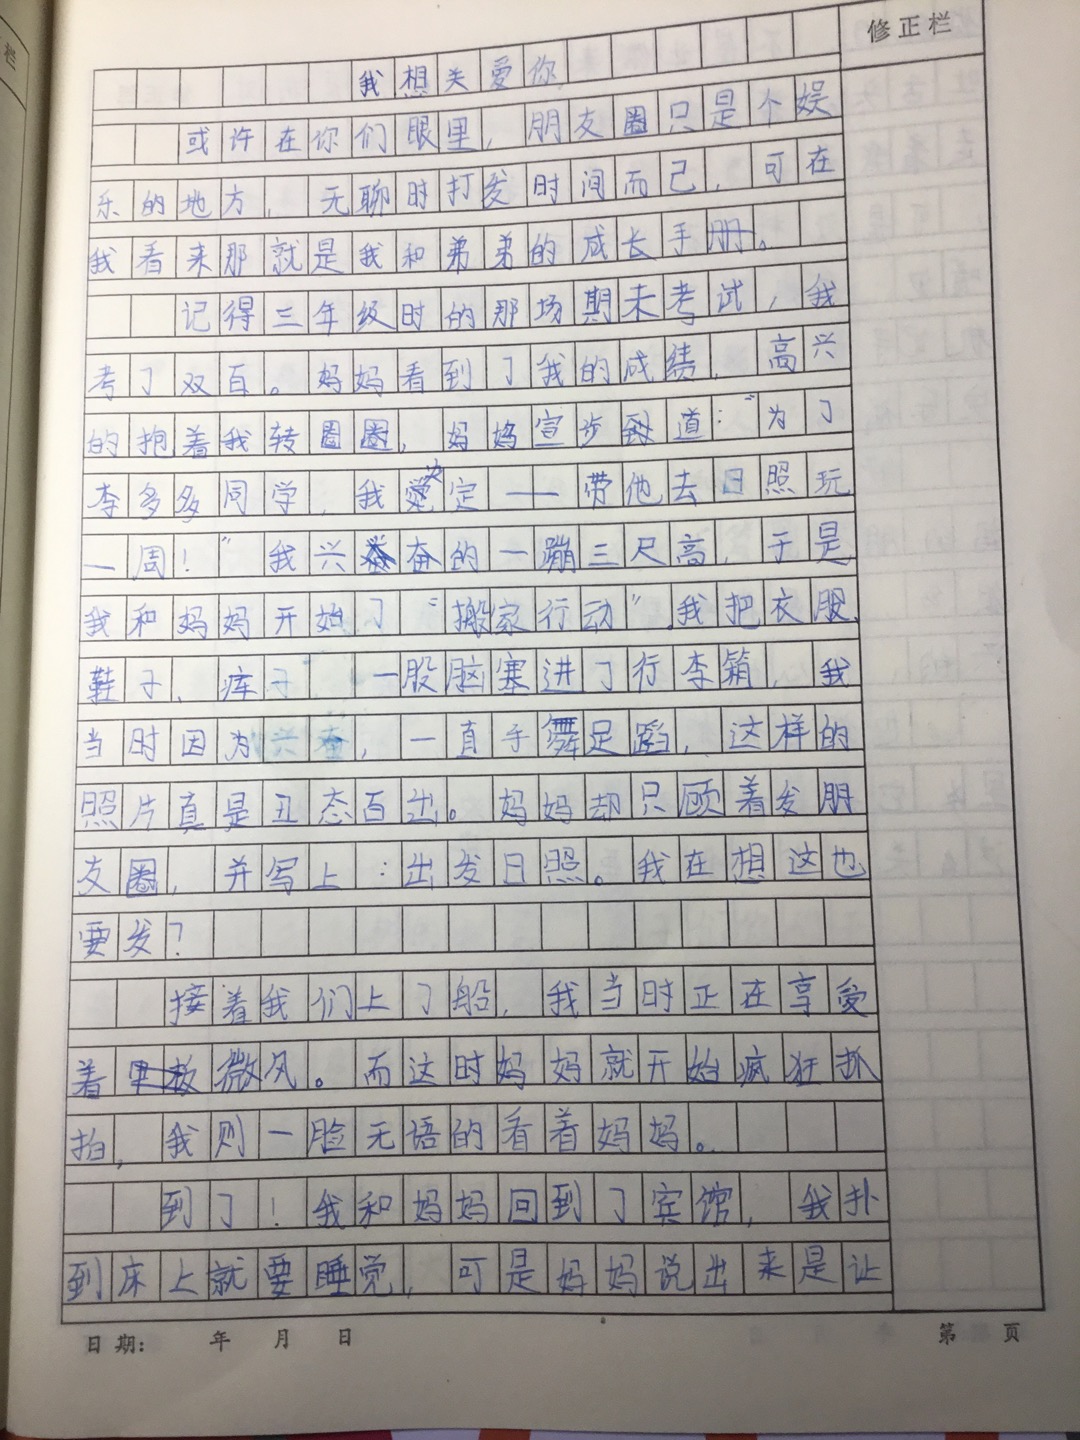 修正栏
我想关爱你
或许在你们眼里，朋友圈只是个娱
乐的地方，无聊时打发时间而己，可在
我看来那就是我和弟弟的成长手册。
记得三年级时的那场期未考试，我
考了双百。妈妈看到了我的成绩，高兴
的抱着我转圈圈，妈妈宣步到道："为了
李多多同学，我决定——带他去日照玩
一周！"我兴奋的一蹦三尺高，于是
我和妈妈开始了"搬家行动"。我把衣服、
鞋子、库子 一股脑塞进了行李箱，我
当时因为兴奋，一直手舞足蹈，这样的
照片真是丑态百出。妈妈却只顾着发朋
友圈，并写上：出发日照。我在想这也
要发？
接着我们上了船，我当时正在享受
着微风。而这时妈妈就开始疯狂抓
拍，我则一脸无语的看着妈妈。
到了！我和妈妈回到了宾馆，我扑
到床上就要睡觉，可是妈妈说出来是让
日期： 年 月 日 第 页